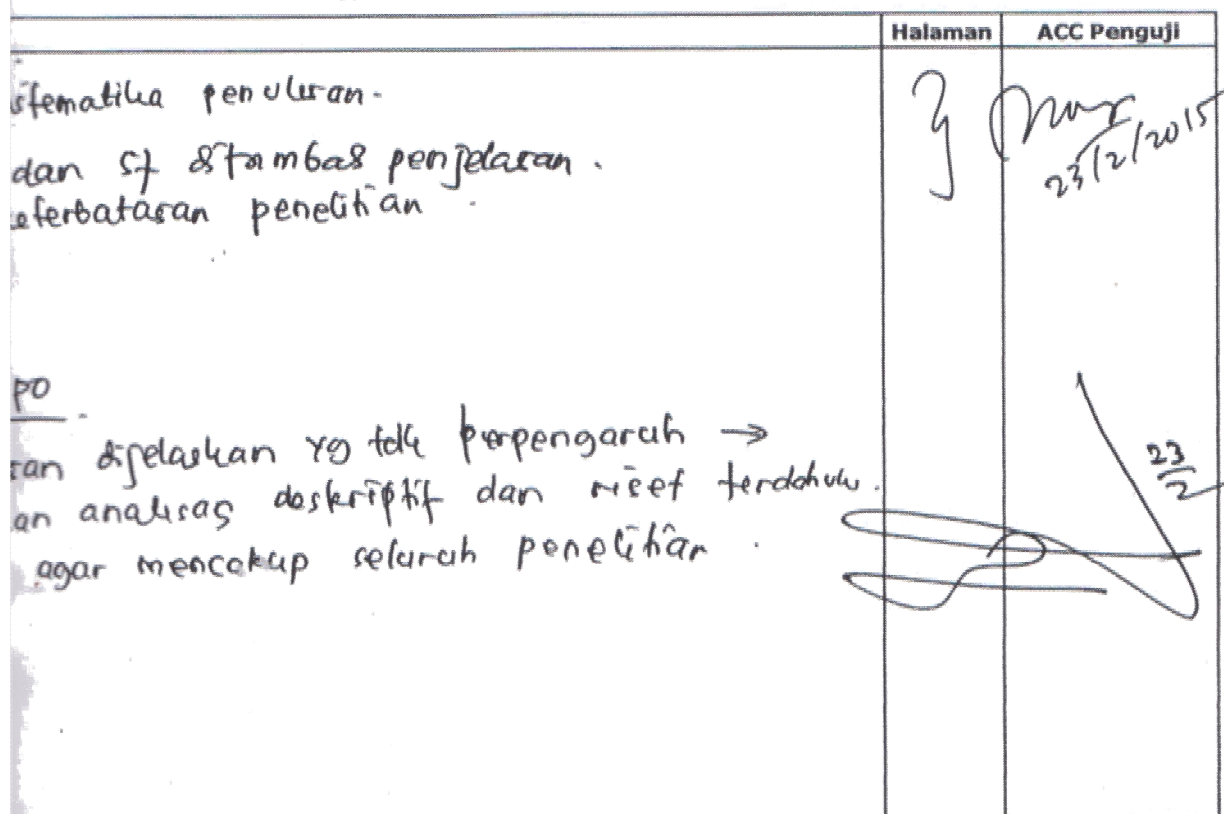 Halaman ACC Penguji
stematika penulisan.
dan sf ditambas penjelasan.
eterbatasan penelitian
23/2/2015
po
san dijelaskan yg tdk berpengaruh →
an analisas deskriptif dan riset terdahulu.
agar mencakup seluruh penelitian.
23/2